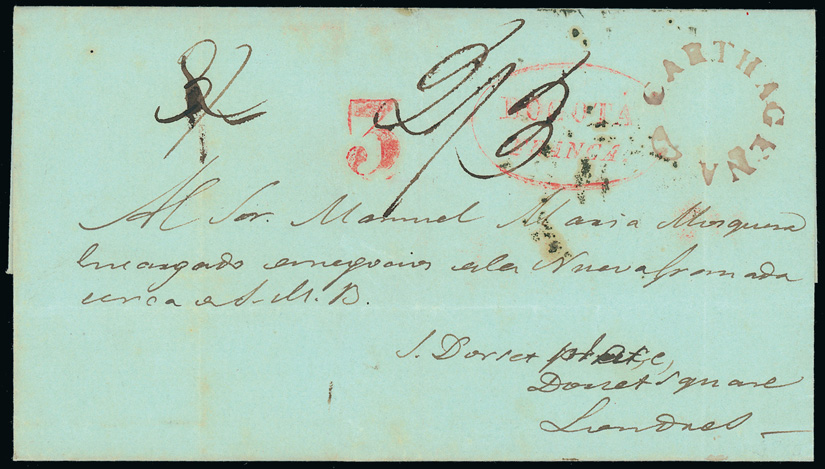 2/
3
2/3
BOGOTA
FRANCA
CARTHAGENA
Al Sor. Manuel Maria Mosquera
Encargado de negocios de la Nueva Granada
cerca de S. M. B.
Dorset place,
Dorset Square
Londres